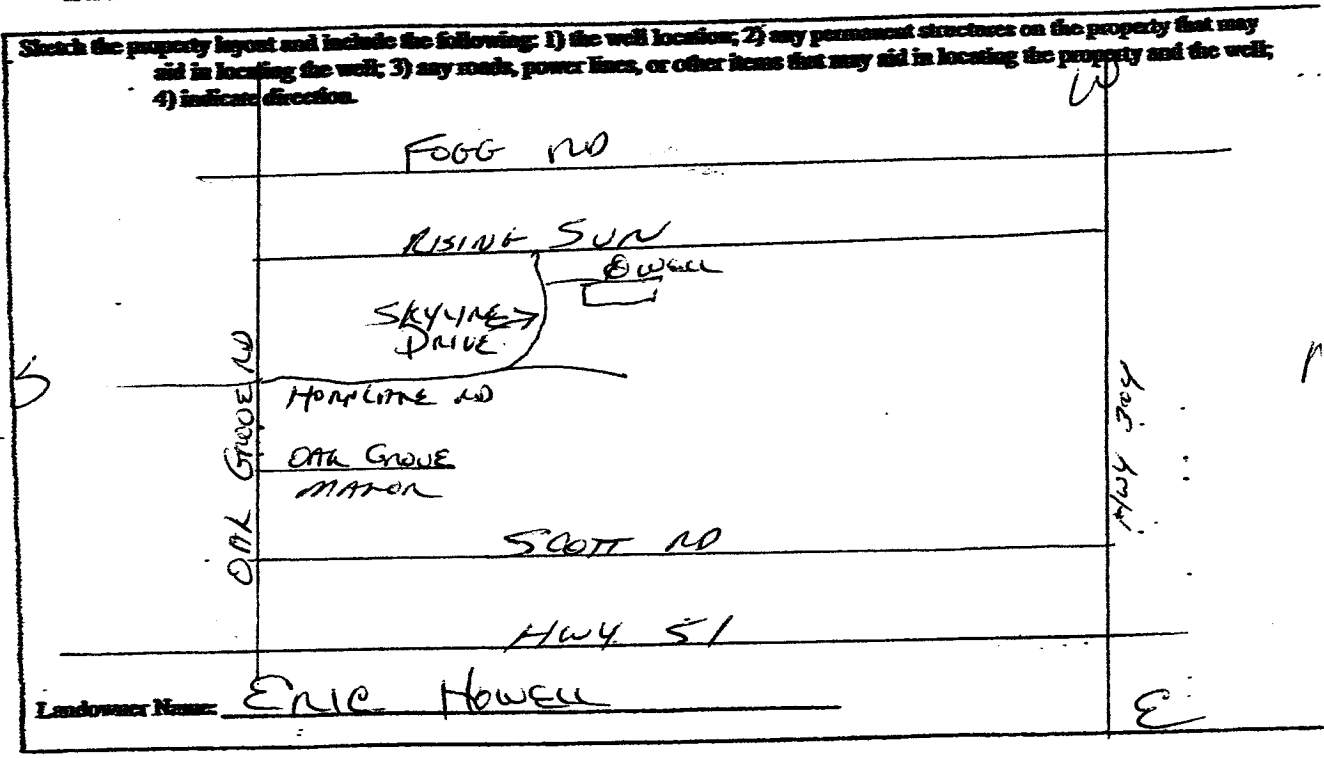 Sketch the property layout and include the following: 1) the well location; 2) any permanent structures on the property that may
aid in locating the well; 3) any roads, power lines, or other items that may aid in locating the property and the well;
4) indicate direction.
W
FOGG RD
RISING SUN
WELL
SKYLINE
DRIVE
S
OAK GROVE RD
HWY
OAK GROVE
MANOR
SCOTT RD
HWY 51
Landowner Name: ERIC HOWELL
E